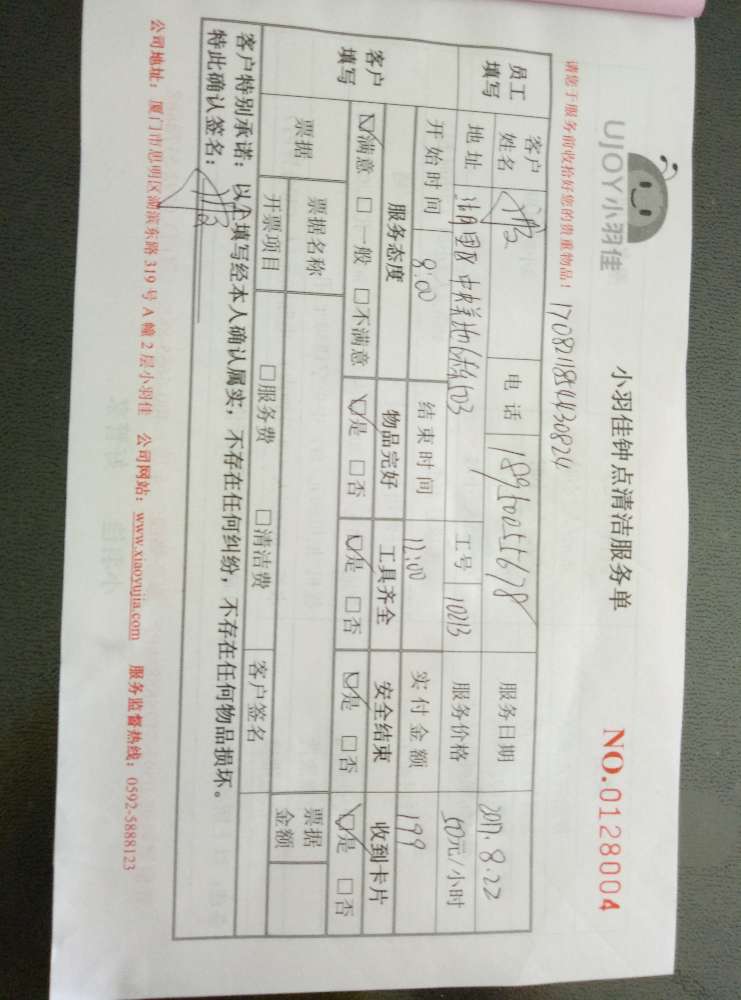 UJOY小羽佳
小羽佳钟点清洁服务单
NO.0128004
请您于服务前收拾好您的贵重物品!
员工填写
客户姓名
电话
服务日期 2017.8.22
地址
工号 10213
服务价格 50元/小时
开始时间 8:00
结束时间 12:00
实付金额 199
客户填写
服务态度 物品完好 工具齐全 安全结束 收到卡片
☑满意 □一般 □不满意 ☑是 □否 ☑是 □否 ☑是 □否 ☑是 □否
票据
票据名称
票据金额
开票项目 □服务费 □清洁费 客户签名
客户特别承诺:以上填写经本人确认属实,不存在任何纠纷,不存在任何物品损坏。
特此确认签名:
公司地址:厦门市思明区湖滨东路319号A幢2层小羽佳 公司网站:www.xiaoyujia.com 服务监督热线:0592-5888123